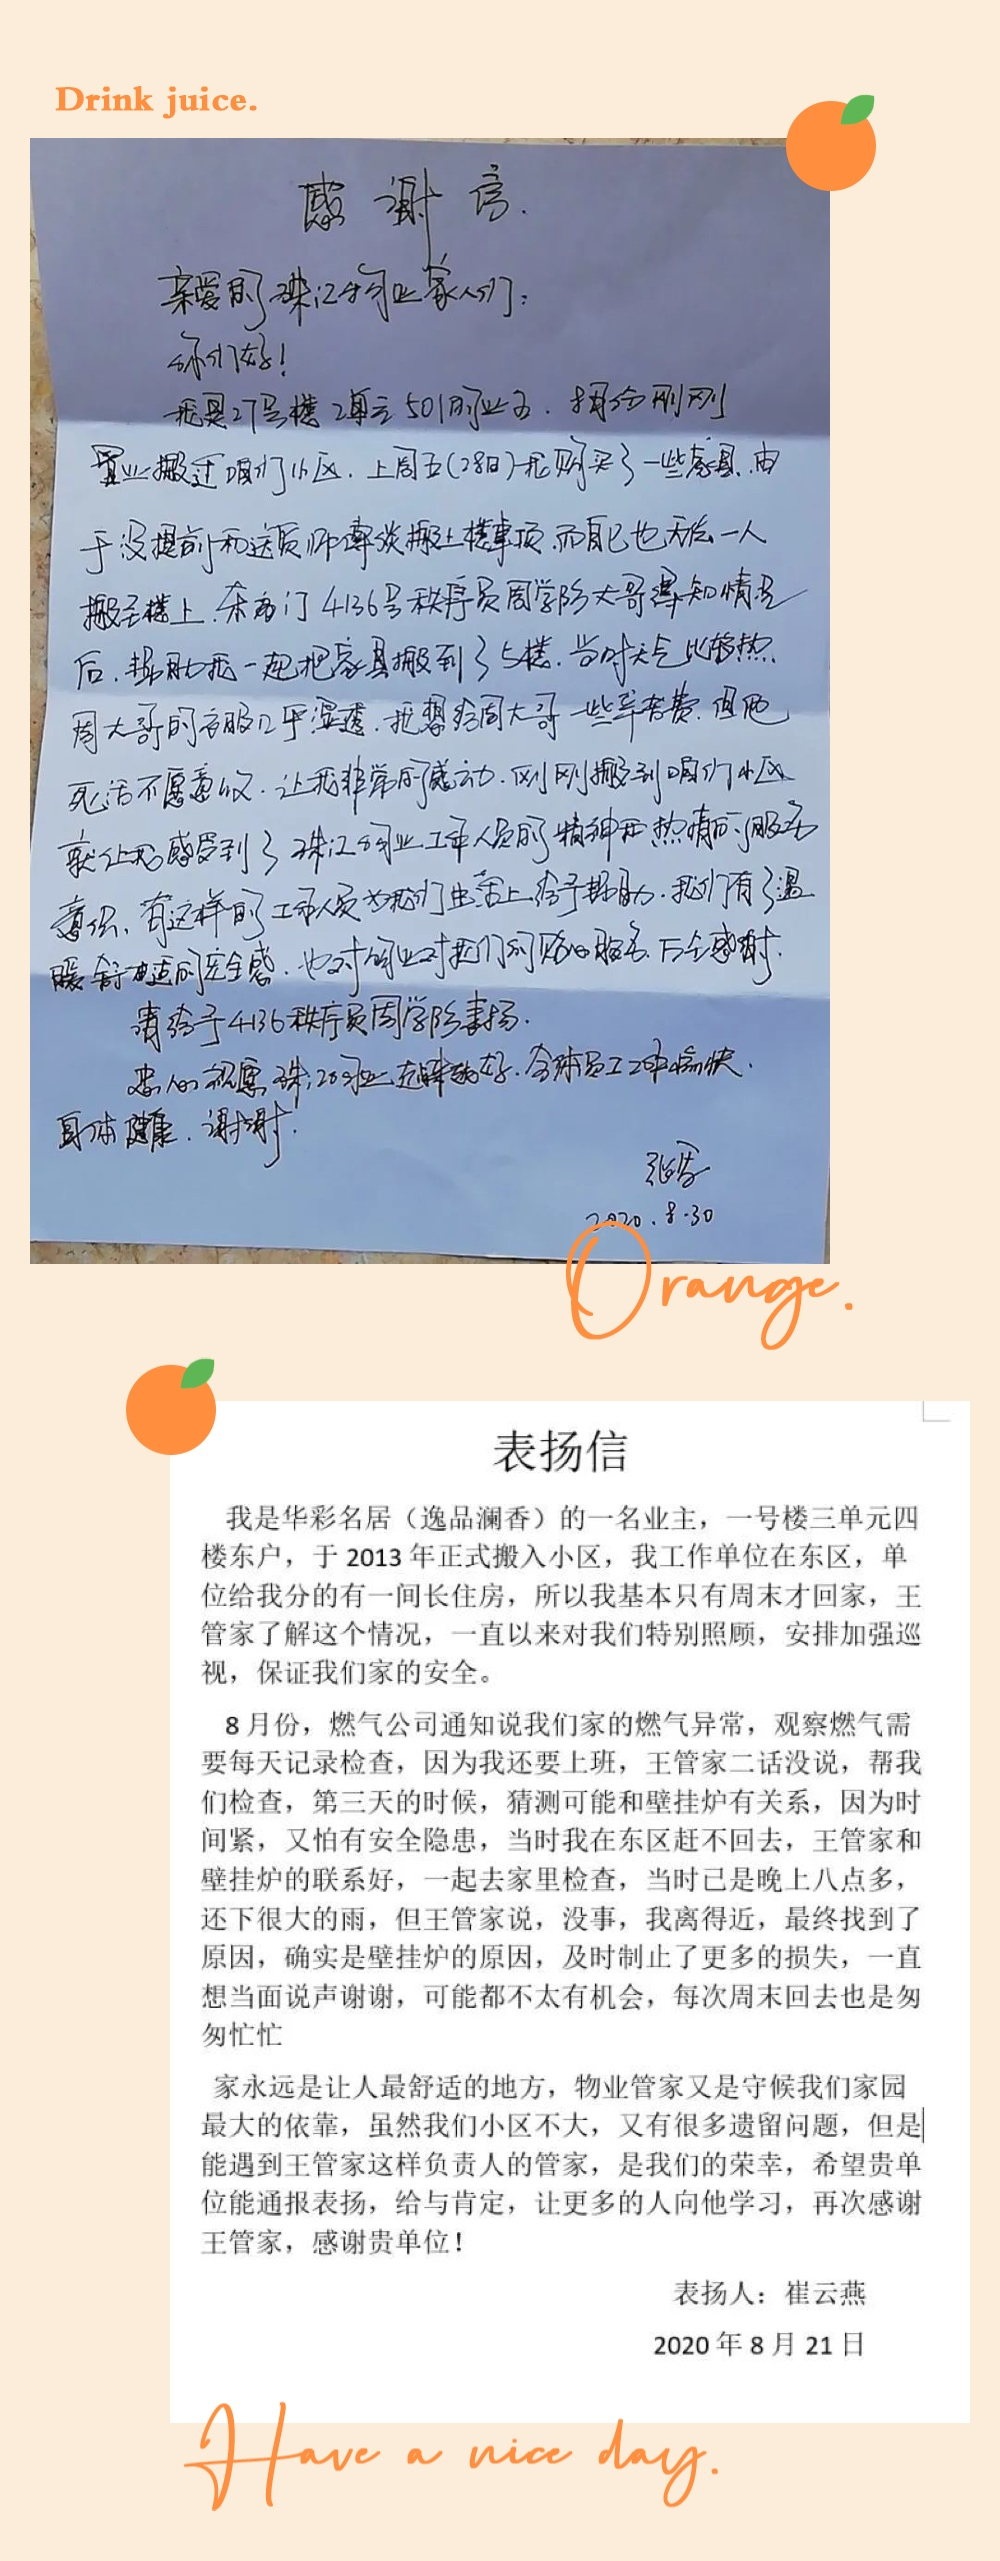 Drink juice.
感谢信.
亲爱的珠江物业家人们:
你们好!
我是27号楼2单元501的业主.
刚刚
置业搬过咱们小区.上周五(28日)我购买了一些家具.由
于没提前和送货师傅谈搬上楼事项,而自己也无法一人
搬至楼上.东西门4136号秩序员周学阶大哥得知情况
后.帮助我一起把家具搬到了5楼.当时天气比较热.
周大哥的衣服几乎湿透.我想给周大哥一些辛苦费.但他
死活不愿意收.让我非常的感动.刚刚搬到咱们小区
就让我感受到了珠江物业工作人员的精神和热情的服务
意识.有这样的工作人员为我们生活上给予帮助.我们有了温
暖舒适的安全感.也对物业对我们的贴心服务
感谢.
请给予4136秩序员周学阶表扬.
祝愿珠江物业
越好.全体员工工作愉快.
身体健康.谢谢!
2020.8.30
Orange.
表扬信
我是华彩名居（逸品澜香）的一名业主，一号楼三单元四
楼东户，于 2013 年正式搬入小区，我工作单位在东区，单
位给我分的有一间长住房，所以我基本只有周末才回家，王
管家了解这个情况，一直以来对我们特别照顾，安排加强巡
视，保证我们家的安全。
8 月份，燃气公司通知说我们家的燃气异常，观察燃气需
要每天记录检查，因为我还要上班，王管家二话没说，帮我
们检查，第三天的时候，猜测可能和壁挂炉有关系，因为时
间紧，又怕有安全隐患，当时我在东区赶不回去，王管家和
壁挂炉的联系好，一起去家里检查，当时已是晚上八点多，
还下很大的雨，但王管家说，没事，我离得近，最终找到了
原因，确实是壁挂炉的原因，及时制止了更多的损失，一直
想当面说声谢谢，可能都不太有机会，每次周末回去也是匆
匆忙忙
家永远是让人最舒适的地方，物业管家又是守候我们家园
最大的依靠，虽然我们小区不大，又有很多遗留问题，但是
能遇到王管家这样负责人的管家，是我们的荣幸，希望贵单
位能通报表扬，给与肯定，让更多的人向他学习，再次感谢
王管家，感谢贵单位！
表扬人：崔云燕
2020 年 8 月 21 日
Have a nice day.